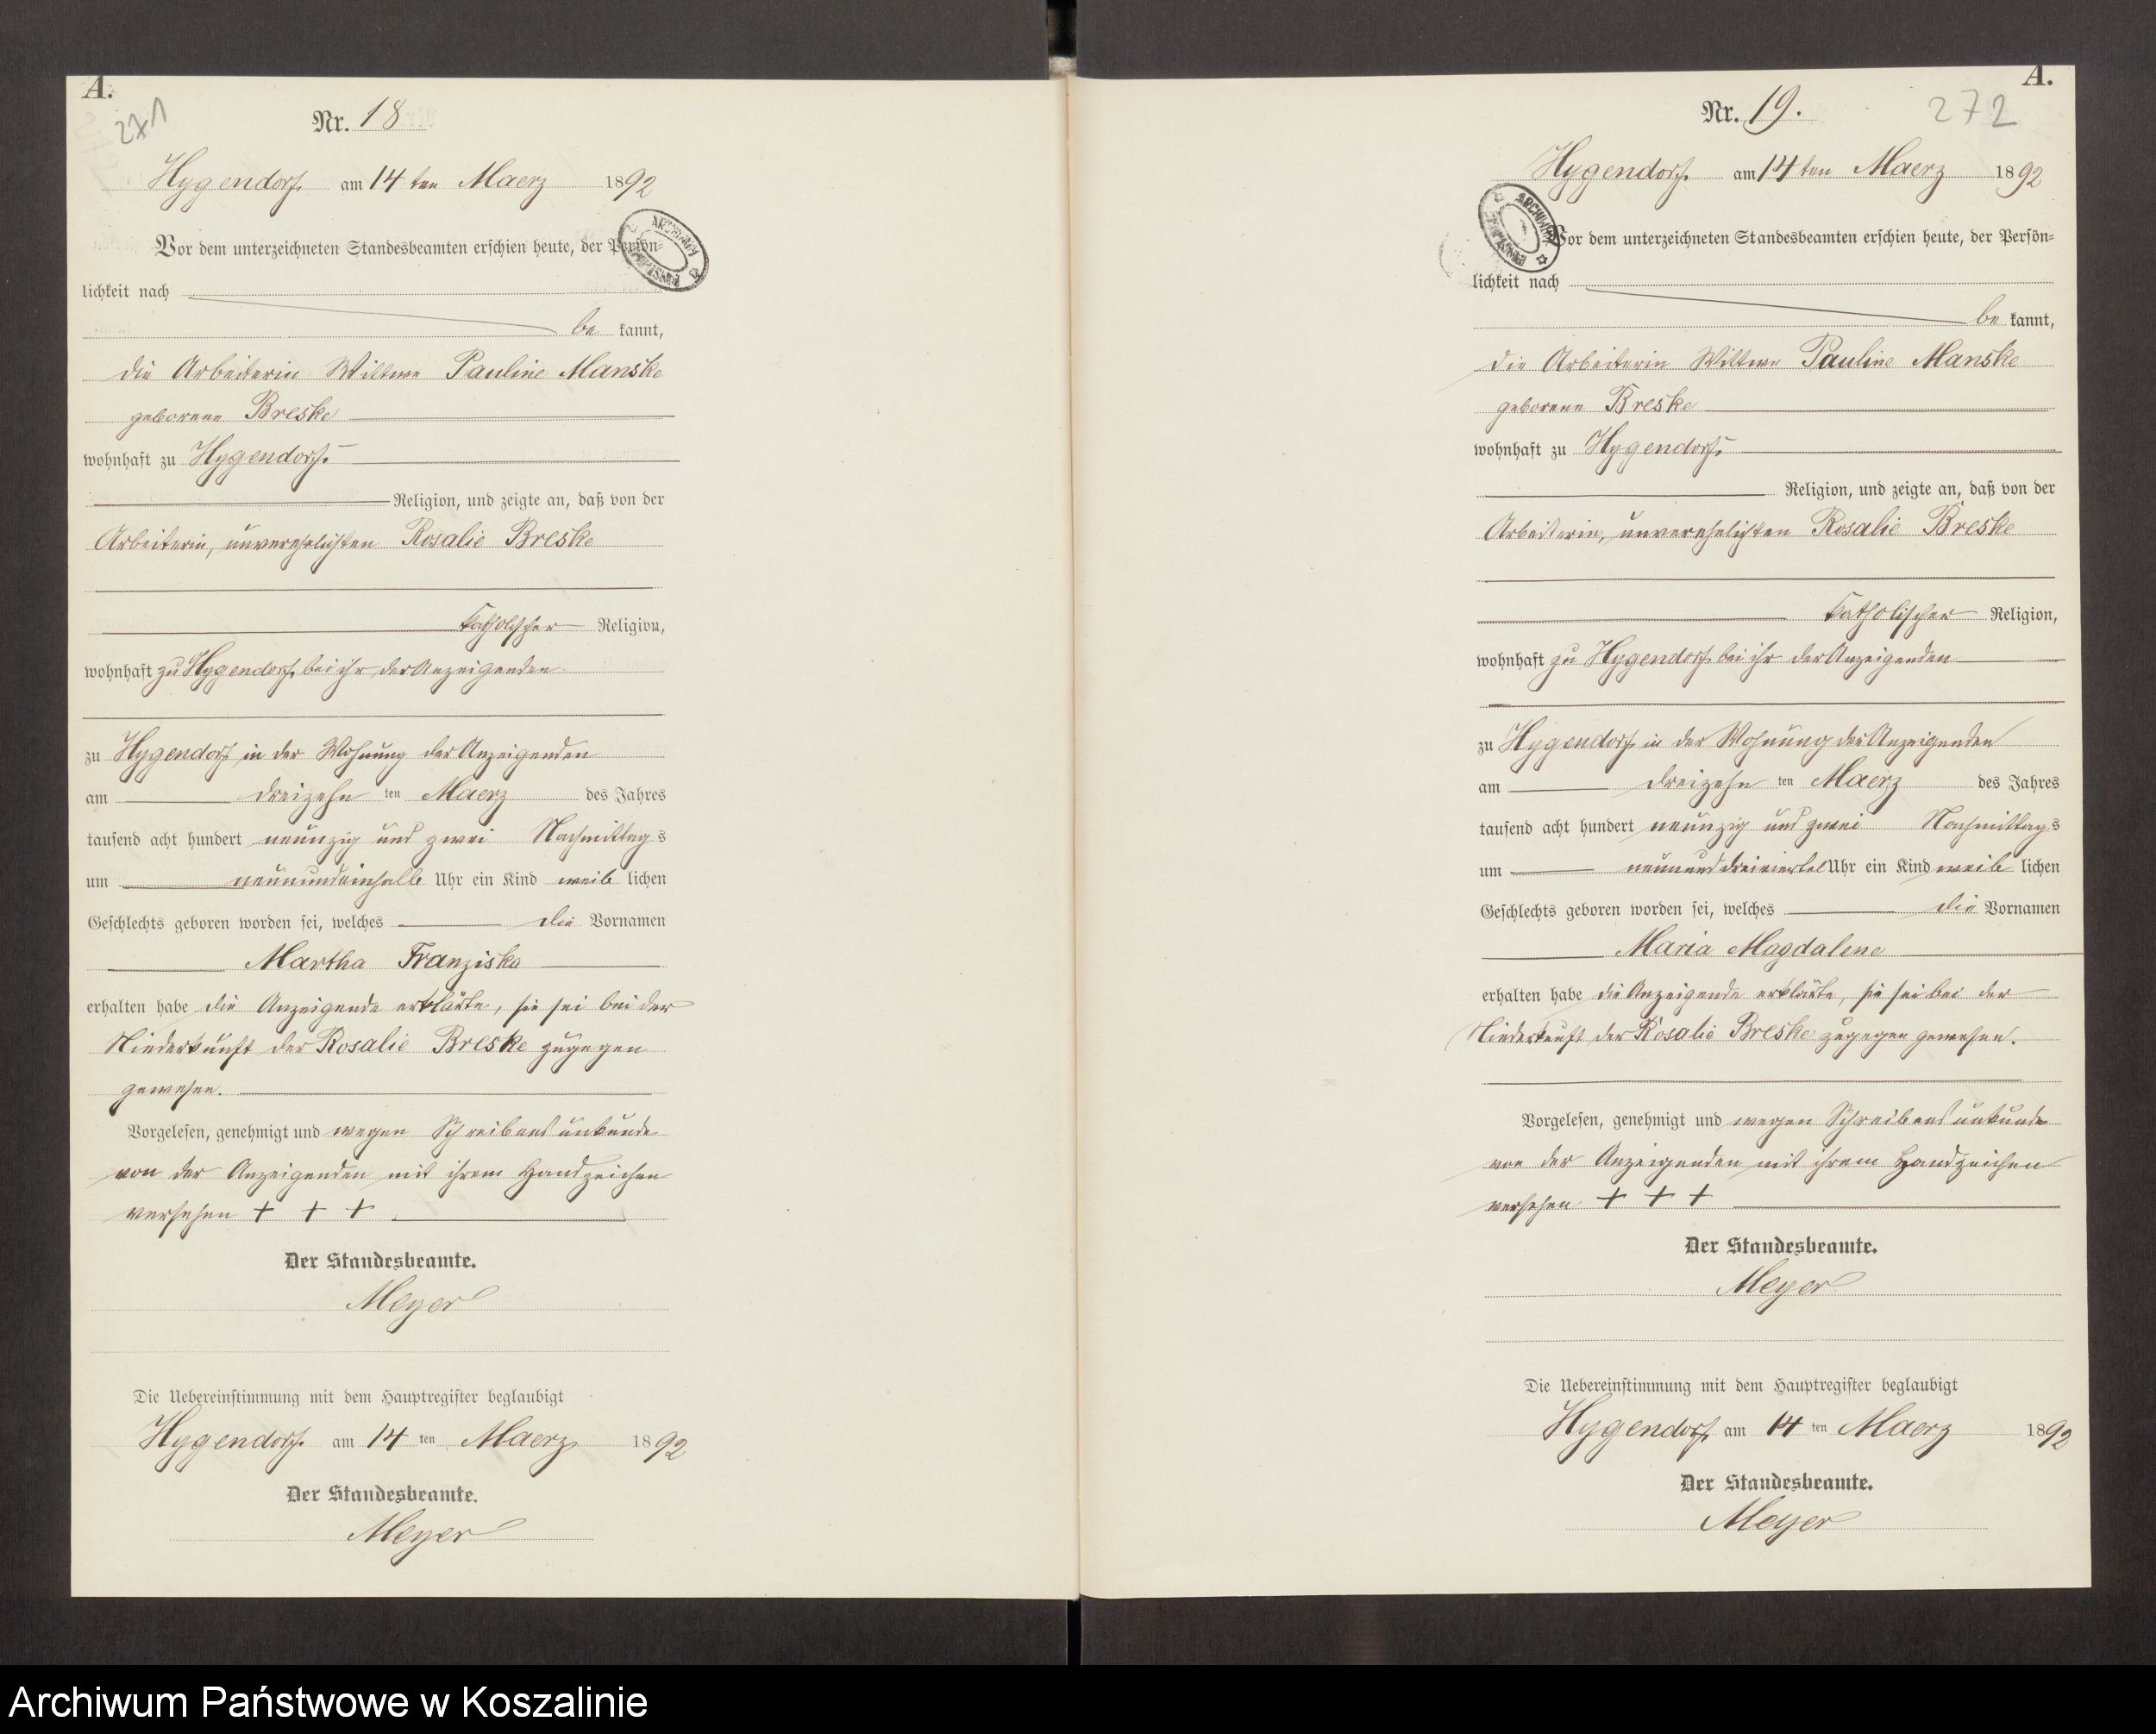 A.
271
Nr. 18
Hygendorf am 14 ten Maerz 1892
Vor dem unterzeichneten Standesbeamten erschien heute, der Persön-
lichkeit nach
be kannt,
die Arbeiterin Wittwe Pauline Manske
geborene Breske
wohnhaft zu Hygendorf
Religion, und zeigte an, daß von der
Arbeiterin, unverehelichten Rosalie Breske
katholischer Religion,
wohnhaft zu Hygendorf bei ihr der Anzeigenden
zu Hygendorf in der Wohnung der Anzeigenden
am dreizehn ten Maerz des Jahres
tausend acht hundert neunzig und zwei Nachmittags
um neunundeinhalb Uhr ein Kind weib lichen
Geschlechts geboren worden sei, welches die Vornamen
Martha Franziska
erhalten habe die Anzeigende erklärte, sie sei bei der
Niederkunft der Rosalie Breske zugegen
gewesen.
Vorgelesen, genehmigt und wegen Schreibensunkunde
von der Anzeigenden mit ihrem Handzeichen
versehen + + +
Der Standesbeamte.
Meyer
Die Uebereinstimmung mit dem Hauptregister beglaubigt
Hygendorf am 14 ten Maerz 1892
Der Standesbeamte.
Meyer
A.
272
Nr. 19.
Hygendorf. am 14 ten Maerz 1892
Vor dem unterzeichneten Standesbeamten erschien heute, der Persön-
lichkeit nach
be kannt,
die Arbeiterin Wittwe Pauline Manske
geborene Breske
wohnhaft zu Hygendorf
Religion, und zeigte an, daß von der
Arbeiterin, unverehelichten Rosalie Breske
katholischer Religion,
wohnhaft zu Hygendorf bei ihr der Anzeigenden
zu Hygendorf in der Wohnung der Anzeigenden
am dreizehn ten Maerz des Jahres
tausend acht hundert neunzig und zwei Nachmittags
um neununddreiviertel Uhr ein Kind weib lichen
Geschlechts geboren worden sei, welches die Vornamen
Maria Magdalene
erhalten habe die Anzeigende erklärte, sie sei bei der
Niederkunft der Rosalie Breske zugegen gewesen.
Vorgelesen, genehmigt und wegen Schreibensunkunde
von der Anzeigenden mit ihrem Handzeichen
versehen + + +
Der Standesbeamte.
Meyer
Die Uebereinstimmung mit dem Hauptregister beglaubigt
Hygendorf am 14 ten Maerz 1892
Der Standesbeamte.
Meyer
Archiwum Państwowe w Koszalinie